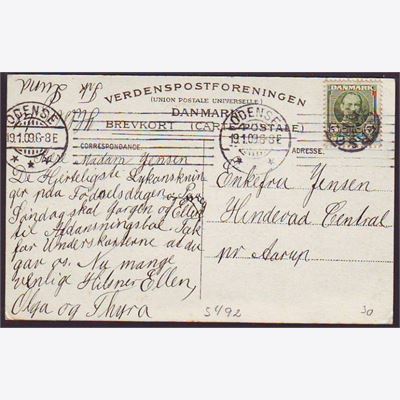 VERDENSPOSTFORENINGEN
(UNION POSTALE UNIVERSELLE)
DANMARK
BREVKORT (CARTE POSTALE)
CORRESPONDANCE.
ADRESSE.
DANMARK
ODENSE
19.1.09.6-8E
ODENSE
19.1.09.6-8E
Madam Jensen
De Hierteligste Lykønsknin
ger paa Födselsdagen
Söndag skal Jørgen og Ellen
til Afdansningsbal Tak
for Underskaaterne at du
gav os. Nu mange
venlige Hilsner Ellen,
Olga og Thyra
Enkefru Jensen
Hindevad Central
pr Aarup
5492
30